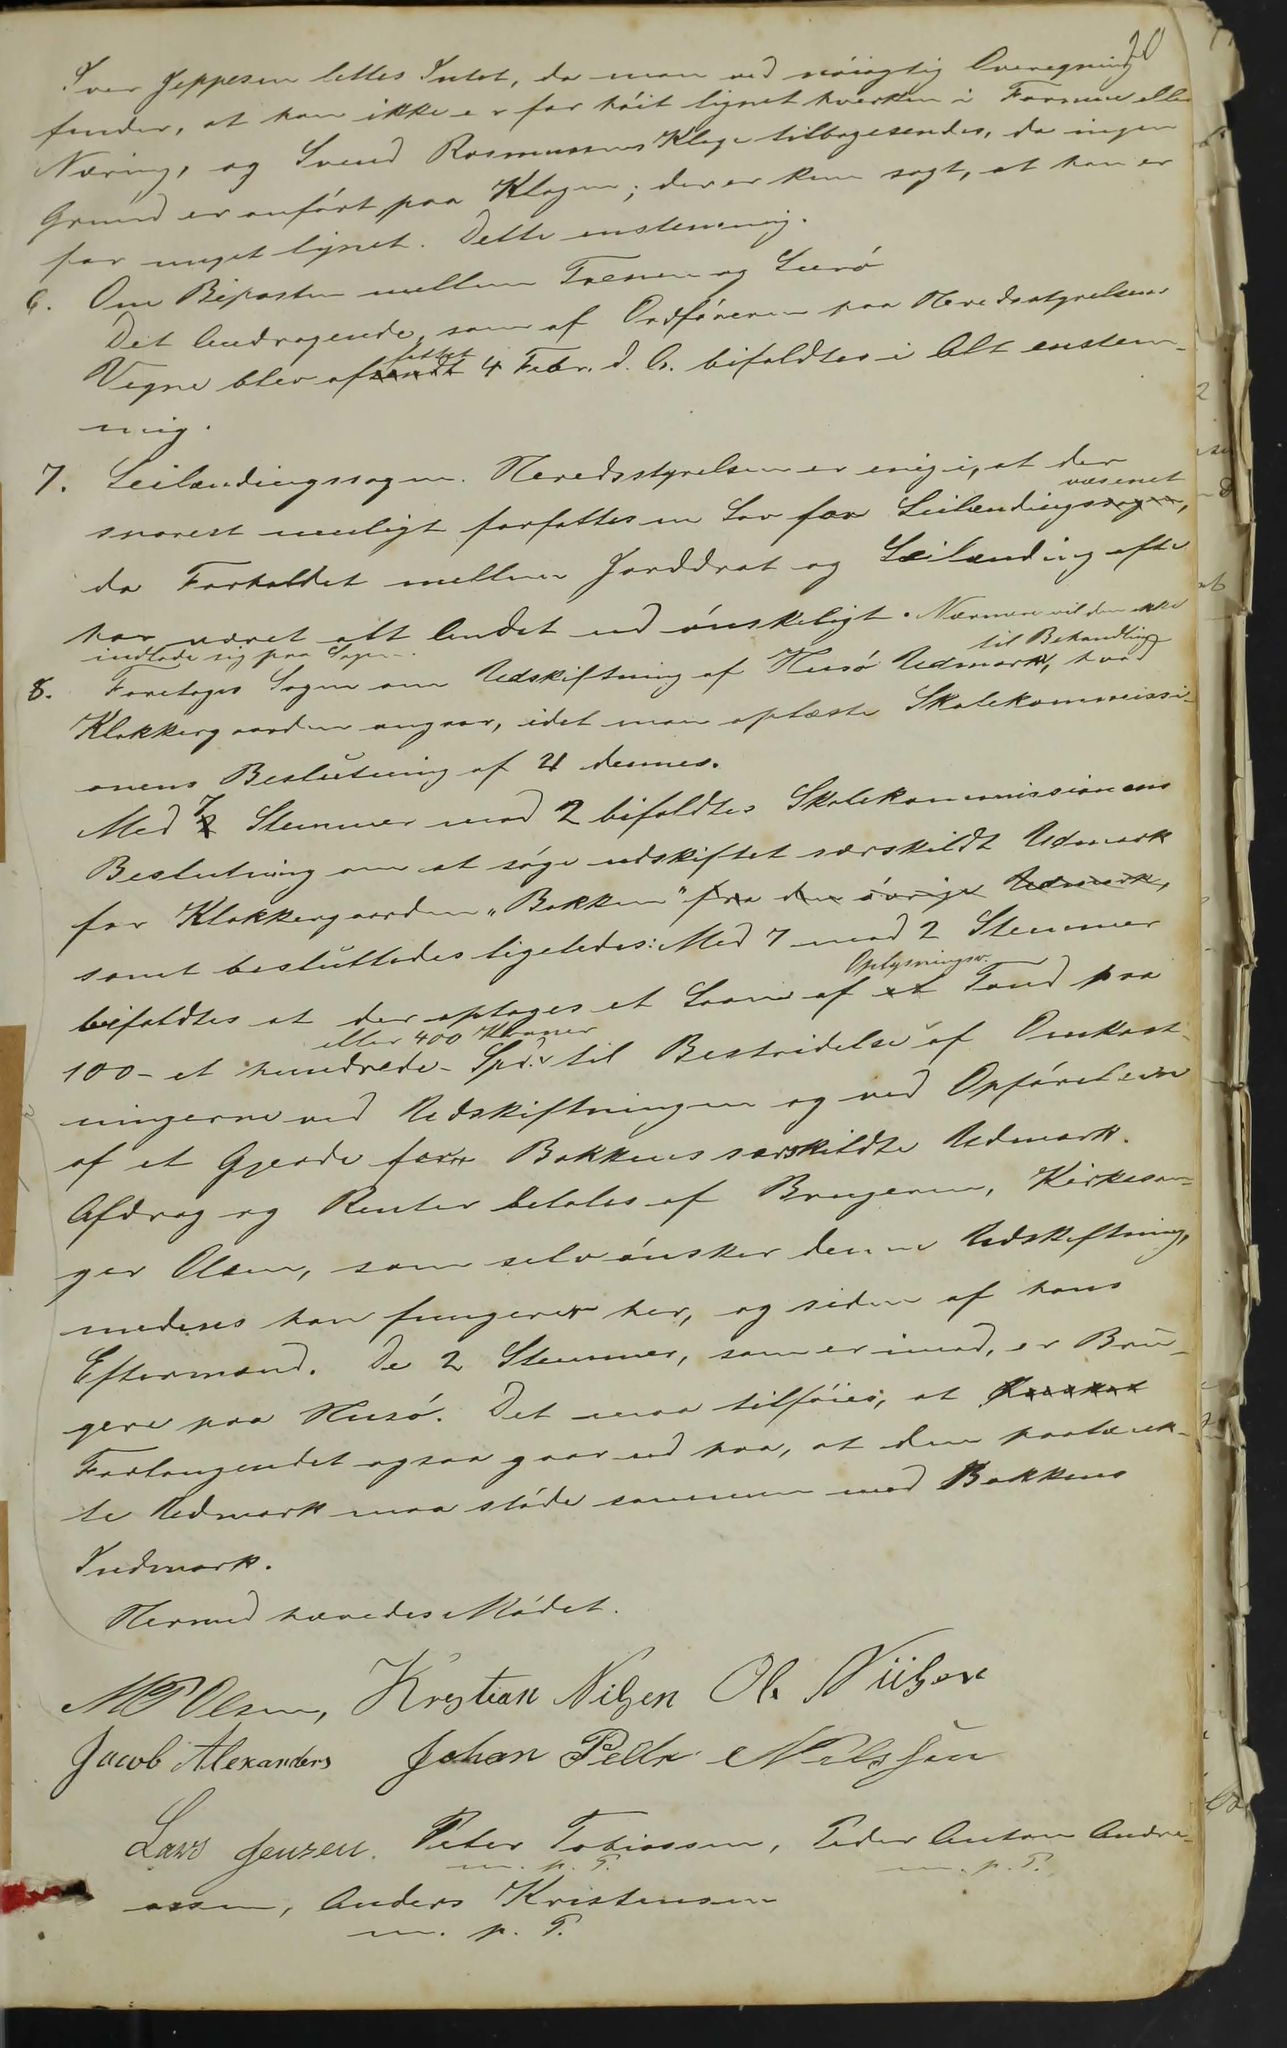 20
Iver Jeppesen lettes Intet, da man ved nöiagtig Overegning
finder, at han ikke er for höit lignet hverken i Formue eller
Næring, og Svend Rasmussens Klage tilbagesendes, da ingen
Grund er anfört paa Klagen; der er kun sagt, at han er
for meget lignet. Dette enstemmig.
6. Om Biposten mellem Trænen og Lurö
Det Andragende, som af Ordföreren paa Heredsstyrelsens
fattet
Vegne blev afsendt 4 Febr. d. A. bifaldtes i Alt enstem-
mig.
7. Leilændingssagen. Heredsstyrelsen er enig i, at der
væsenet
snarest muligt forfattes en Lov for Leilændingssagen,
da Forholdet mellem Jorddrot og Leilænding ofte
har været alt Andet end önskeligt. Nærmere vil den ikke
indlade sig paa Sagen.
til Behandling
8. Foretoges Sagen om Udskiftning af Husö Udmark, hvad
Klokkergaarden angaar, idet man oplæste Skolekommissi-
onens Beslutning af 21 dennes.
Med 7 Stemmer mod 2 bifaldtes Skolekommissionens
Beslutning om at söge udskiftet særskildt Udmark
for Klokkergaarden "Bakken" fra den övrige Udmark,
samt besluttedes ligeledes: Med 7 mod 2 Stemmer
Oplysningsv.
bifaldtes at der optages et Laan af et Fond paa
eller 400 Kroner
100 - et hundrede - Spd. til Bestridelse af Omkost-
ningerne ved Udskiftningen og ved Opförelsen
af et Gjerde for Bakkens særskildte Udmark.
Afdrag og Renter betales af Brugeren, Kirkesan-
ger Olsen, som selv önsker denne Udskiftning,
medens han fungerer her, og siden af hans
Eftermand. De 2 Stemmer, som er imod, er Bru-
gere paa Husö. Det maa tilföies, at
Forlangendet ogsaa gaar ud paa, at den paatænk-
te Udmark maa stöde sammen med Bakkens
Indmark.
Hermed hævedes Mödet.
M P Olsen, Krystian Nilsen Ole Niilsen
Jacob Alexanders Johan Peder Nilssen
Lars Jenzen. Peter Tobiassen, Peder Anton Andre-
m. p. P. m. p. P.
assen, Anders Kristensen
m. p. P.